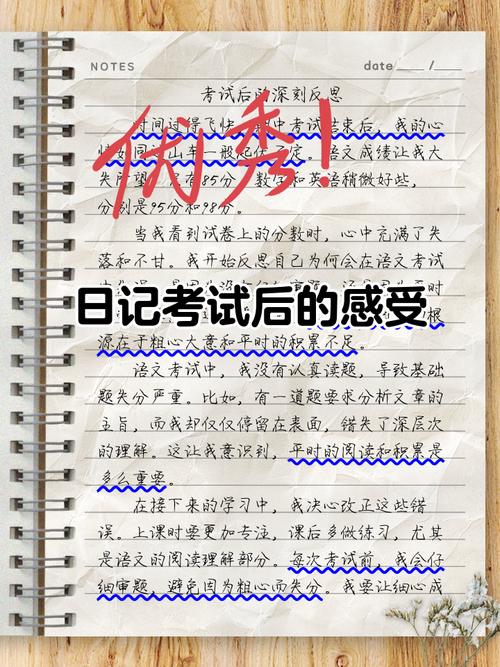 NOTES
date
考试后的深刻反思
优秀!
时间过得飞快,期中考试结束后,我的心
情如同过山车一般起伏不定。语文成绩让我大
失所望,只有85分,数学和英语稍微好些,
分别是95分和98分。
当我看到试卷上的分数时,心中充满了失
落和不甘。我开始反思自己为何会在语文考试
日记考试后的感受
根
源在于粗心大意和平时的积累不足。
语文考试中,我没有认真读题,导致基础
题失分严重。比如,有一道题要求分析文章的
主旨,而我却仅仅停留在表面,错失了深层次
的理解。这让我意识到,平时的阅读和积累是
多么重要。
在接下来的学习中,我决心改正这些错
误。上课时要更加专注,课后多做练习,尤其
是语文的阅读理解部分。每次考试前,我会仔
细审题,避免因为粗心而失分。我要让细心成